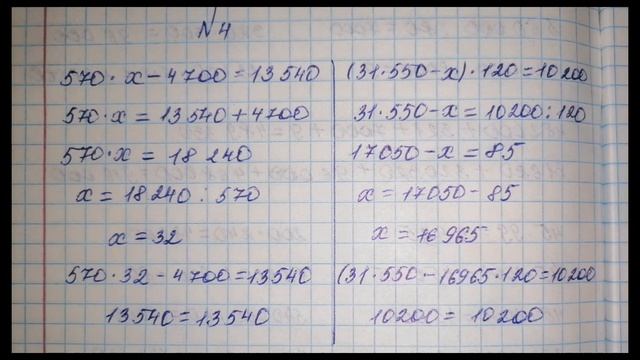 №4
570·x-4700=13540
570·x=13540+4700
570·x=18 240
x=18240:570
x=32
570·32-4700=13540
13540=13540
(31·550-x)·120=10200
31·550-x=10200:120
17050-x=85
x=17050-85
x=16965
(31·550-16965·120=10200
10200=10200